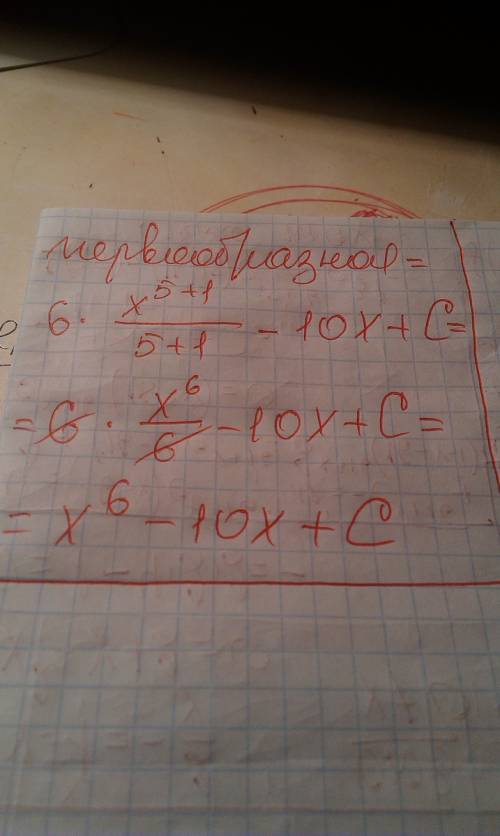 первообразная =
6 · x^(5+1)/(5+1) - 10x + C =
= 6 · x^6/6 - 10x + C =
= x^6 - 10x + C